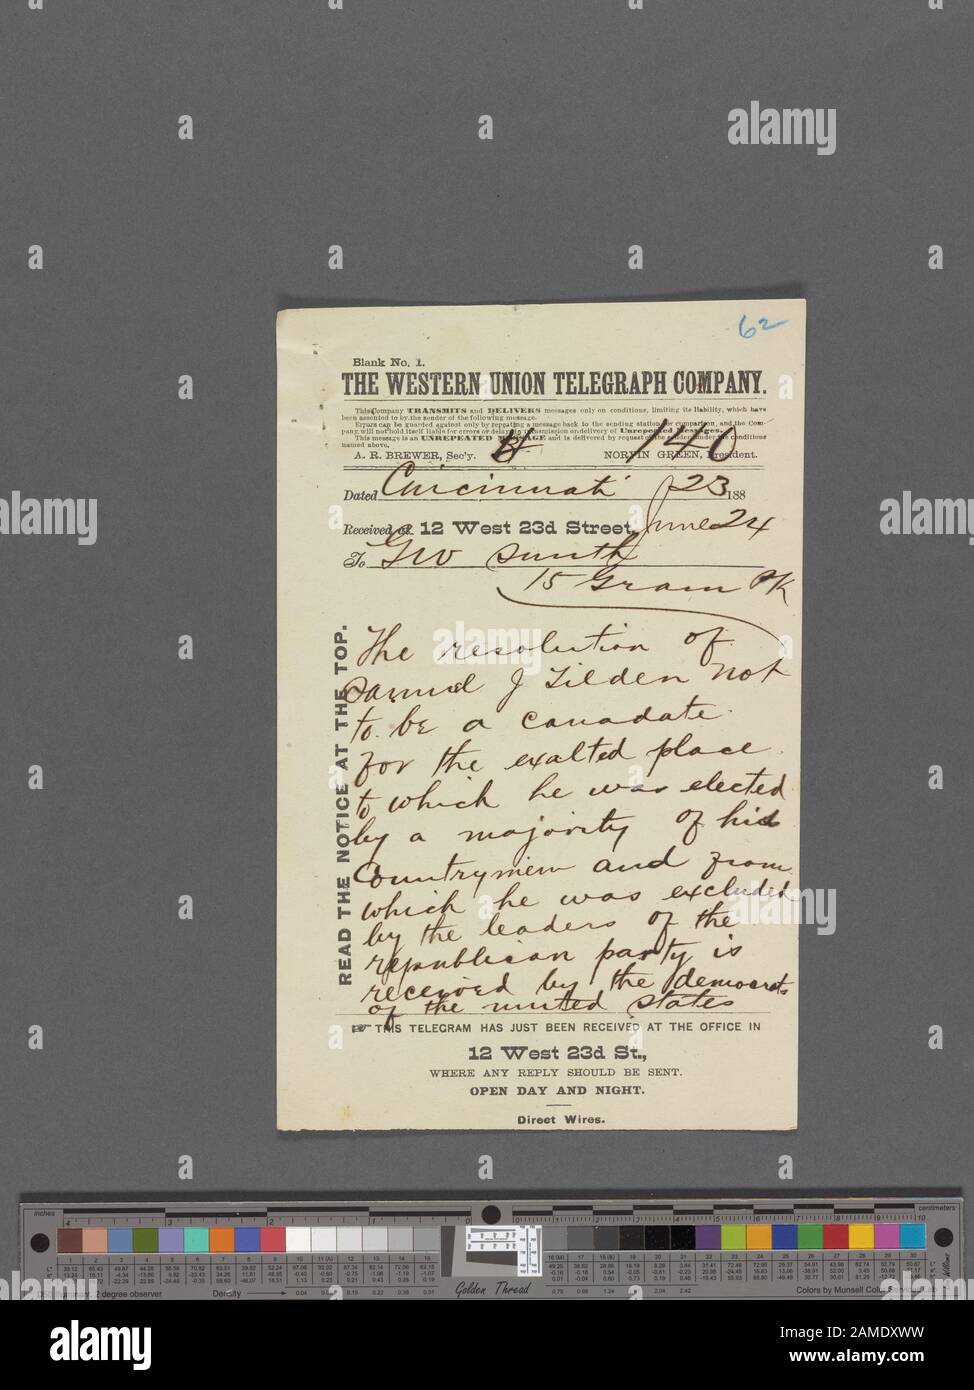 62
Blank No. 1.
THE WESTERN UNION TELEGRAPH COMPANY.
This Company TRANSMITS and DELIVERS messages only on conditions, limiting its liability, which have
been assented to by the sender of the following message.
Errors can be guarded against only by repeating a message back to the sending station for comparison, and the Com-
pany will not hold itself liable for errors or delays in transmission or delivery of Unrepeated Messages.
This message is an UNREPEATED MESSAGE and is delivered by request of the sender under the conditions
named above.
A. R. BREWER, Sec'y. NORVIN GREEN, President.
140
Dated Cincinnati 23 188
Received at 12 West 23d Street, June 24
To Geo Smith
15 Gram Pk
READ THE NOTICE AT THE TOP.
The resolution of
Samuel J Tilden not
to be a canadate
for the exalted place
to which he was elected
by a majority of his
Countrymen and from
which he was excluded
by the leaders of the
republican party is
received by the democrats
of the united states
THIS TELEGRAM HAS JUST BEEN RECEIVED AT THE OFFICE IN
12 West 23d St.,
WHERE ANY REPLY SHOULD BE SENT.
OPEN DAY AND NIGHT.
Direct Wires.
inches
centimeters
D50 Illuminant, 2 degree observer
Density
Golden Thread
Colors by Munsell Color Services Lab
alamy
Image ID: 2AMDXWW
www.alamy.com